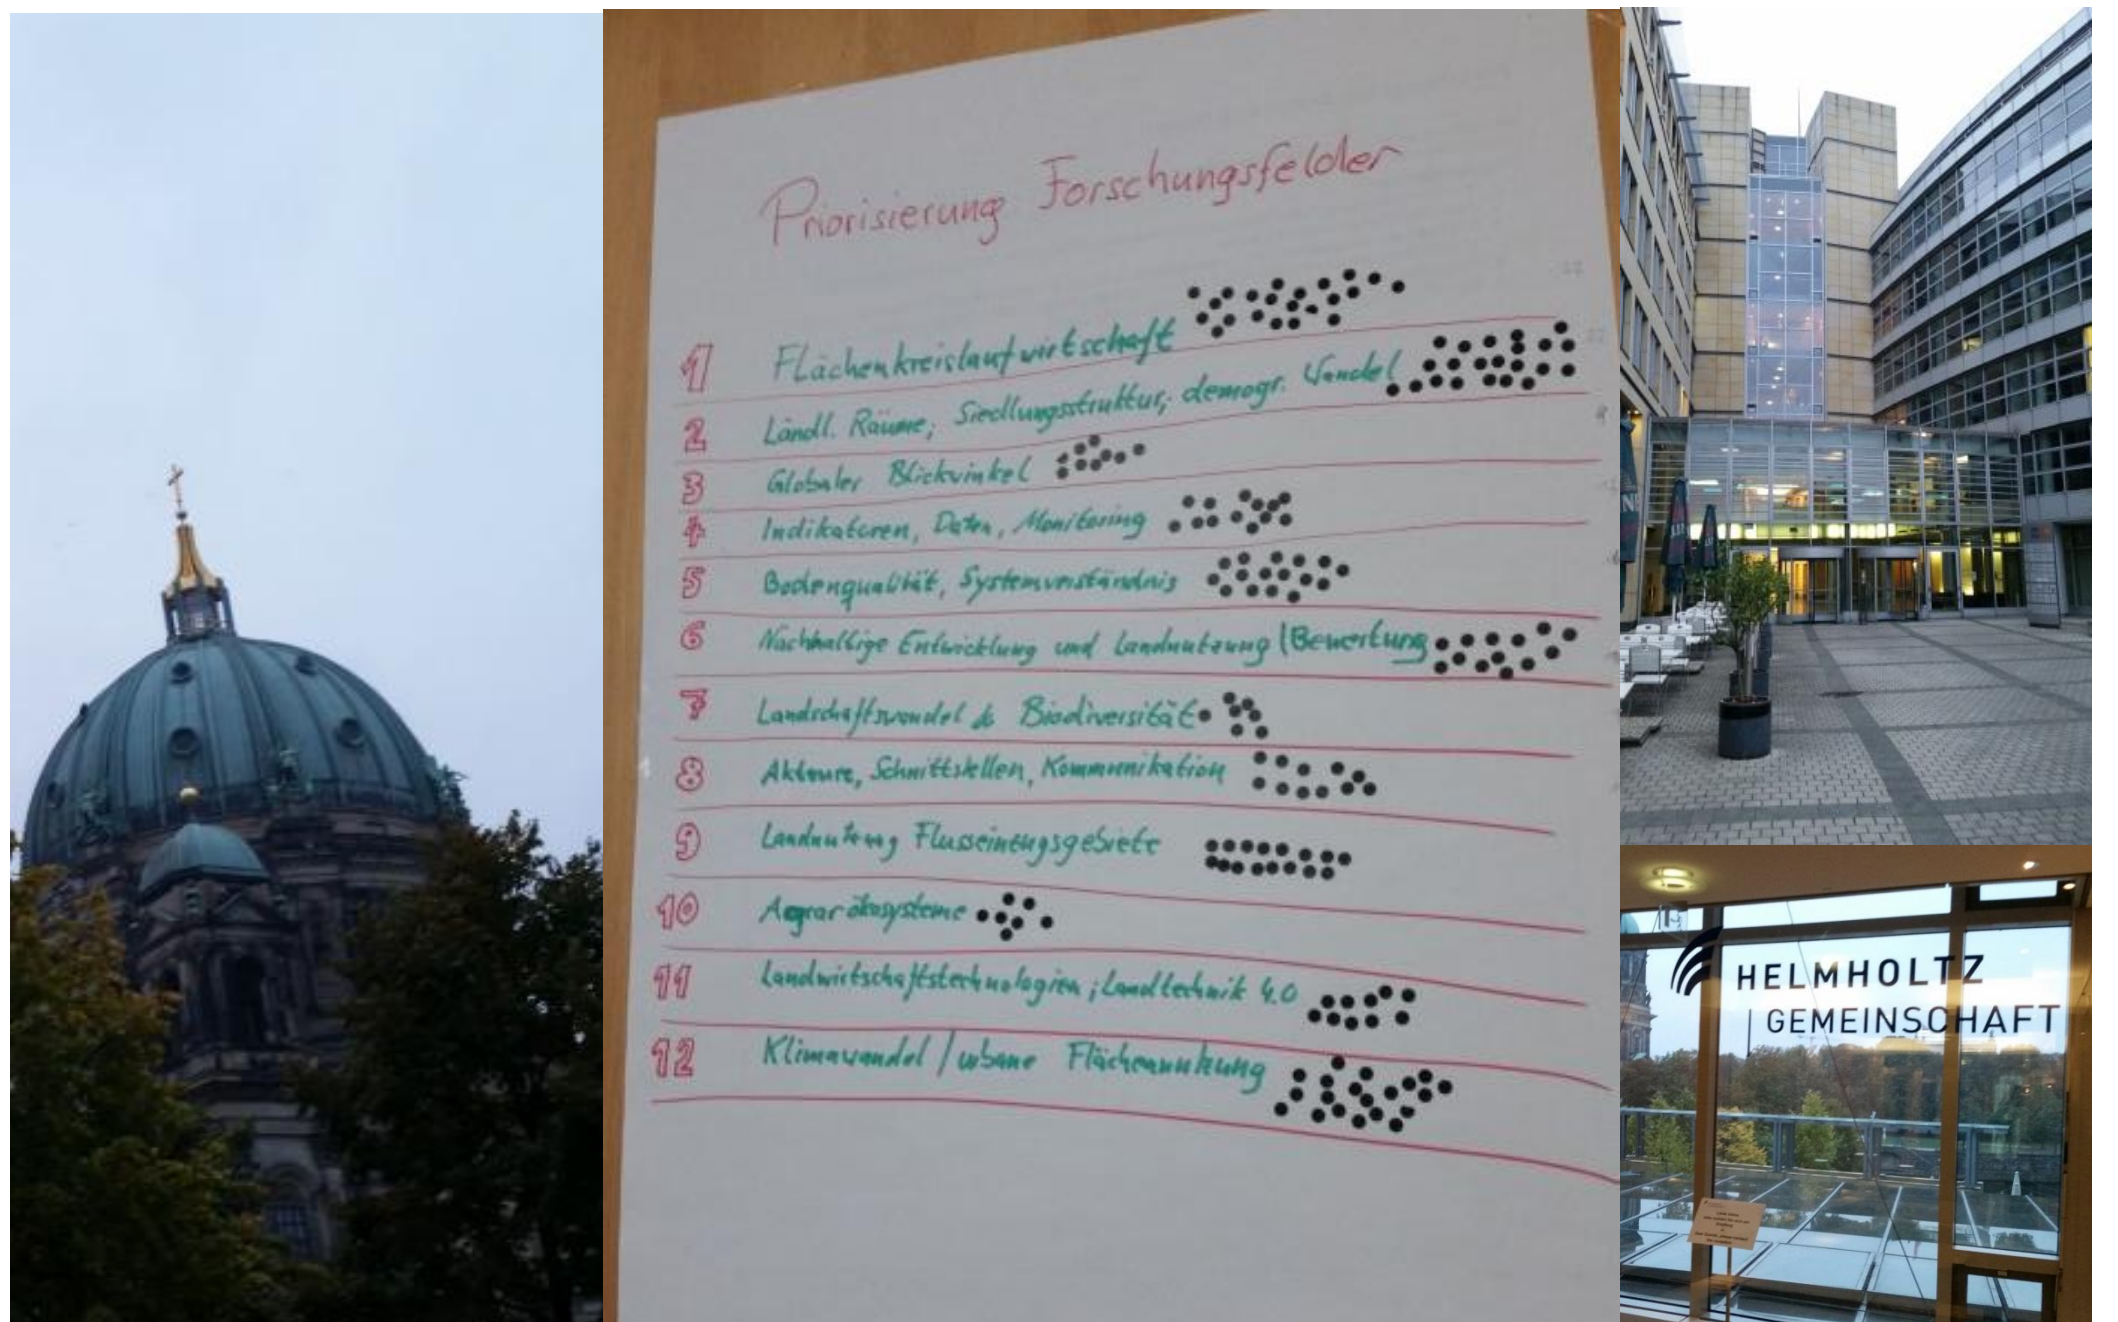 Priorisierung Forschungsfelder
1 Flächenkreislaufwirtschaft
2 Ländl. Räume; Siedlungsstruktur; demogr. Wandel
3 Globaler Blickwinkel
4 Indikatoren, Daten, Monitoring
5 Bodenqualität, Systemverständnis
6 Nachhaltige Entwicklung und Landnutzung (Bewertung
7 Landschaftswandel & Biodiversität
8 Akteure, Schnittstellen, Kommunikation
9 Landnutzung Flusseinzugsgebiete
10 Agrarökosysteme
11 Landwirtschaftstechnologien; Landtechnik 4.0
12 Klimawandel / urbane Flächennutzung
HELMHOLTZ
GEMEINSCHAFT